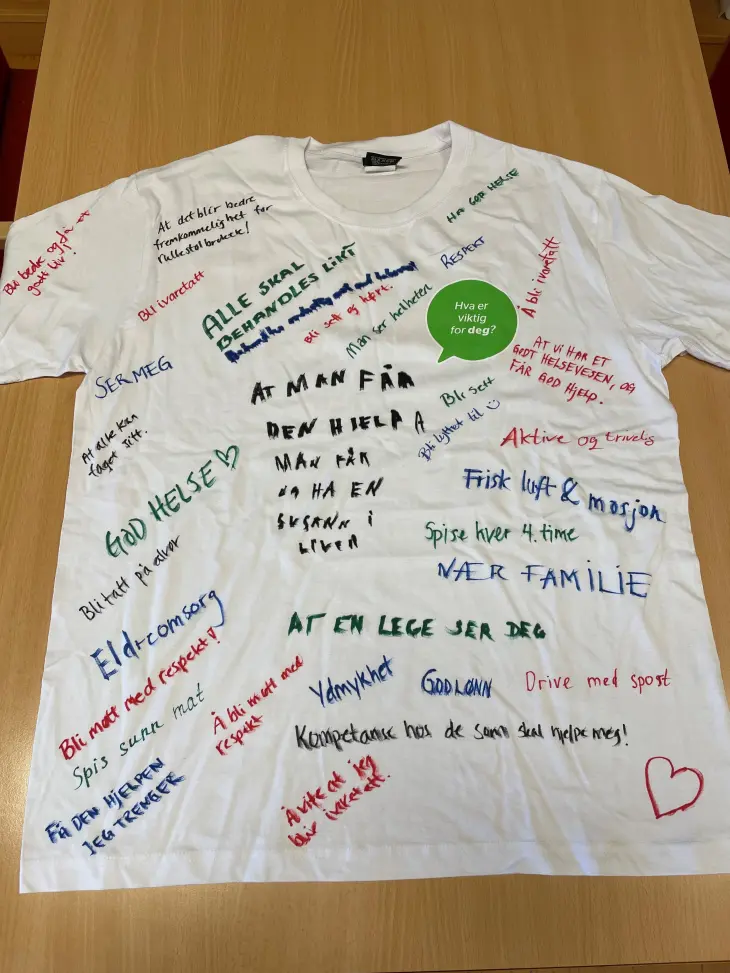 HA GOD HELSE
At det blir bedre
fremkommelighet for
rullestolbrukere!
Bli bedre og få et
godt liv!
RESPEKT
Å bli ivaretatt
Bli ivaretatt
ALLE SKAL
BEHANDLES LIKT
Bli sett og hørt.
Man ser helheten
Hva er
viktig
for deg?
SER MEG
AT MAN FÅR
DEN HJELPA
MAN FÅR
HA EN
I
Bli sett
Bli lyttet til
AT VI HAR ET
GODT HELSEVESEN, OG
FÅR GOD HJELP.
At alle kan
faget sitt.
Aktive og trivelig
GOD HELSE
Frisk luft & mosjon
Spise hver 4. time
Bli tatt på alvor
NÆR FAMILIE
Eldreomsorg
AT EN LEGE SER DEG
Bli møtt med respekt!
Å bli møtt med
respekt
Ydmykhet
GOD LØNN
Drive med sport
Spis sunn mat
Kompetanse hos de som skal hjelpe meg!
FÅ DEN HJELPEN
JEG TRENGER
Å vite at jeg
blir ivaretatt.